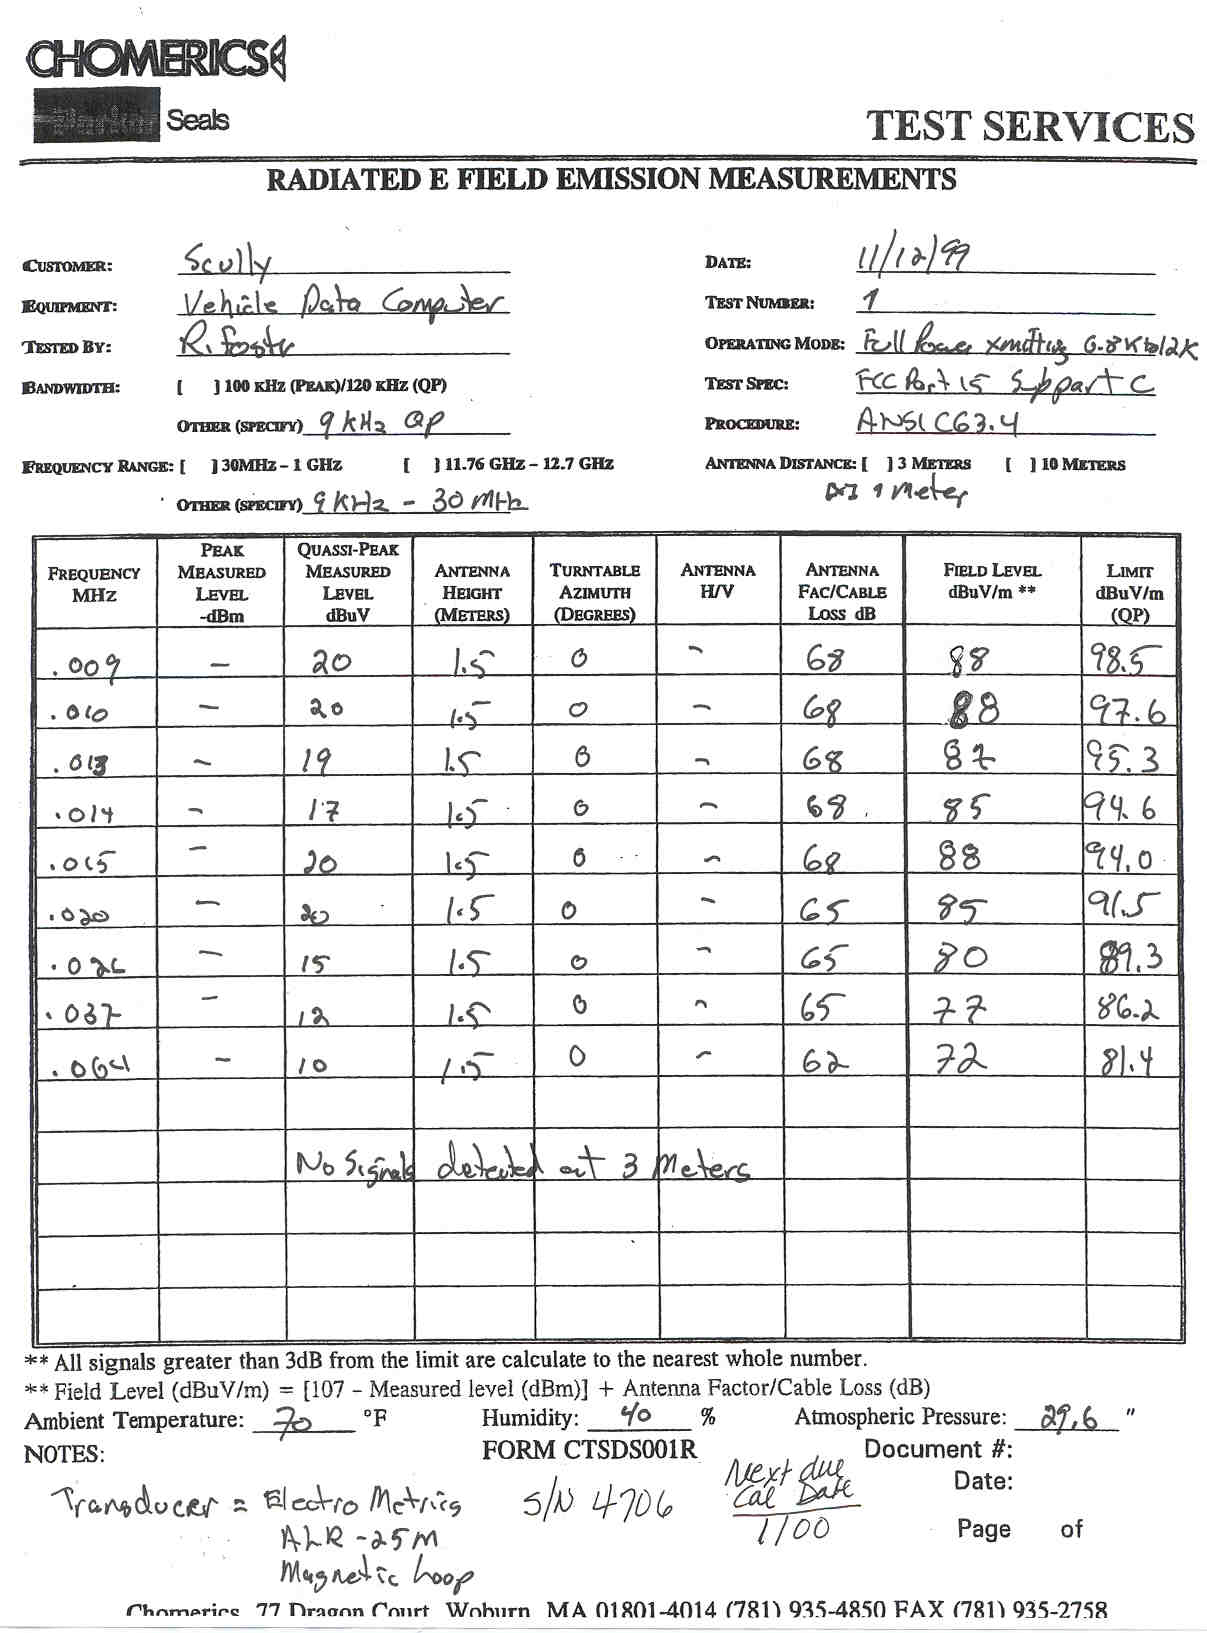 CHOMERICS
Parker Seals
TEST SERVICES
RADIATED E FIELD EMISSION MEASUREMENTS
CUSTOMER: Scully DATE: 11/12/99
EQUIPMENT: Vehicle Data Computer TEST NUMBER: 1
TESTED BY: R. Foster OPERATING MODE: Full Power xmitting 6.8K to 12K
BANDWIDTH: [ ] 100 KHZ (PEAK)/120 KHZ (QP) TEST SPEC: FCC Part 15 Subpart C
OTHER (SPECIFY) 9 KHz QP PROCEDURE: ANSI C63.4
FREQUENCY RANGE: [ ] 30MHZ – 1 GHZ [ ] 11.76 GHZ – 12.7 GHZ ANTENNA DISTANCE: [ ] 3 METERS [ ] 10 METERS
OTHER (SPECIFY) 9 KHz - 30 MHz 1 Meter
FREQUENCY MHZ PEAK MEASURED LEVEL -dBm QUASSI-PEAK MEASURED LEVEL dBuV ANTENNA HEIGHT (METERS) TURNTABLE AZIMUTH (DEGREES) ANTENNA H/V ANTENNA FAC/CABLE LOSS dB FIELD LEVEL dBuV/m ** LIMIT dBuV/m (QP)
.009 - 20 1.5 0 - 68 88 98.5
.010 - 20 1.5 0 - 68 88 97.6
.013 - 19 1.5 0 - 68 87 95.3
.014 - 17 1.5 0 - 68 85 94.6
.015 - 20 1.5 0 - 68 88 94.0
.020 - 20 1.5 0 - 65 85 91.5
.026 - 15 1.5 0 - 65 80 89.3
.037 - 12 1.5 0 - 65 77 86.2
.064 - 10 1.5 0 - 62 72 81.4
No Signals detected at 3 Meters
** All signals greater than 3dB from the limit are calculate to the nearest whole number.
** Field Level (dBuV/m) = [107 – Measured level (dBm)] + Antenna Factor/Cable Loss (dB)
Ambient Temperature: 70 °F Humidity: 40 % Atmospheric Pressure: 29.6 "
NOTES: FORM CTSDS001R Document #:
Transducer = Electro Metrics S/N 4706 Next due Date:
Cal Date
ALR-25M 1/00 Page of
Magnetic Loop
Chomerics 77 Dragon Court Woburn MA 01801-4014 (781) 935-4850 FAX (781) 935-2758